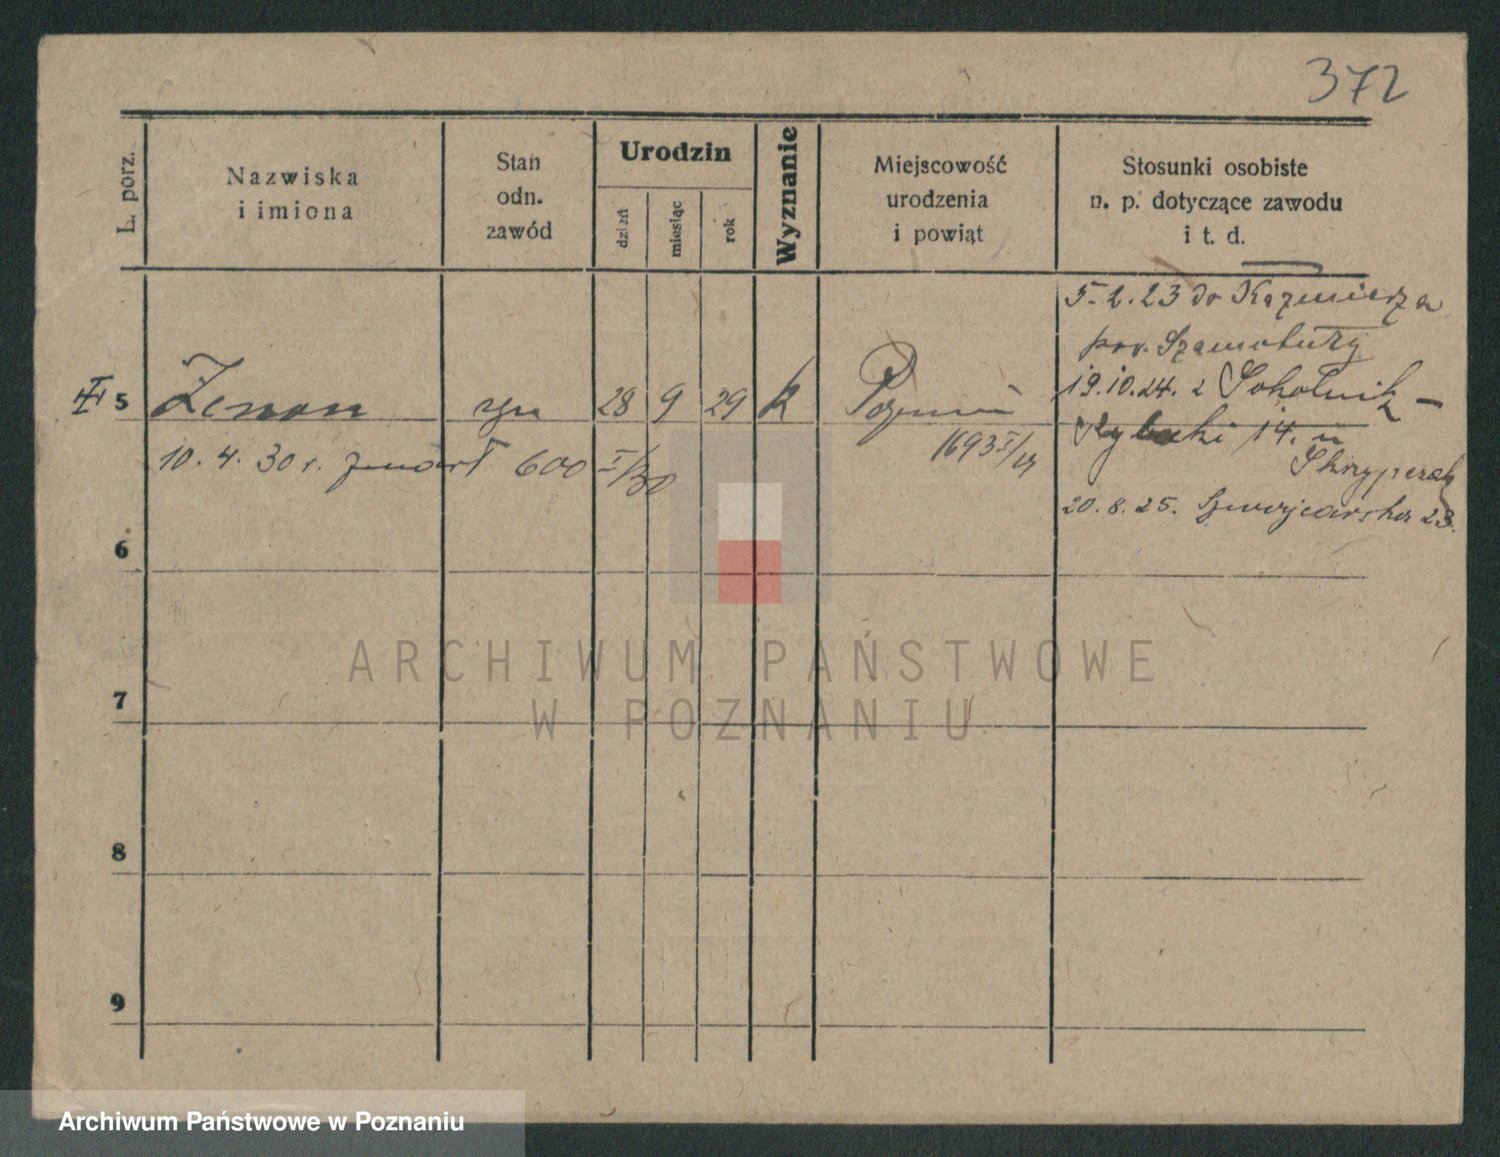 372
L. porz.
Nazwiska
i imiona
Stan
odn.
zawód
Urodzin
dzień
miesiąc
rok
Wyznanie
Miejscowość
urodzenia
i powiąt
Stosunki osobiste
n. p. dotyczące zawodu
i t. d.
5.2.23 do Kaźmierza
pow. Szamotuły
19.10.24. z Sokolnik –
Rybaki 14. u
Skrzypczak
20.8.25. Szwajcarska 23.
5 Zenon syn 28 9 29 k Poznań
1693
10. 4. 30 r. zmarł 600 I/30
6
7
8
9
ARCHIWUM PAŃSTWOWE
W POZNANIU
Archiwum Państwowe w Poznaniu